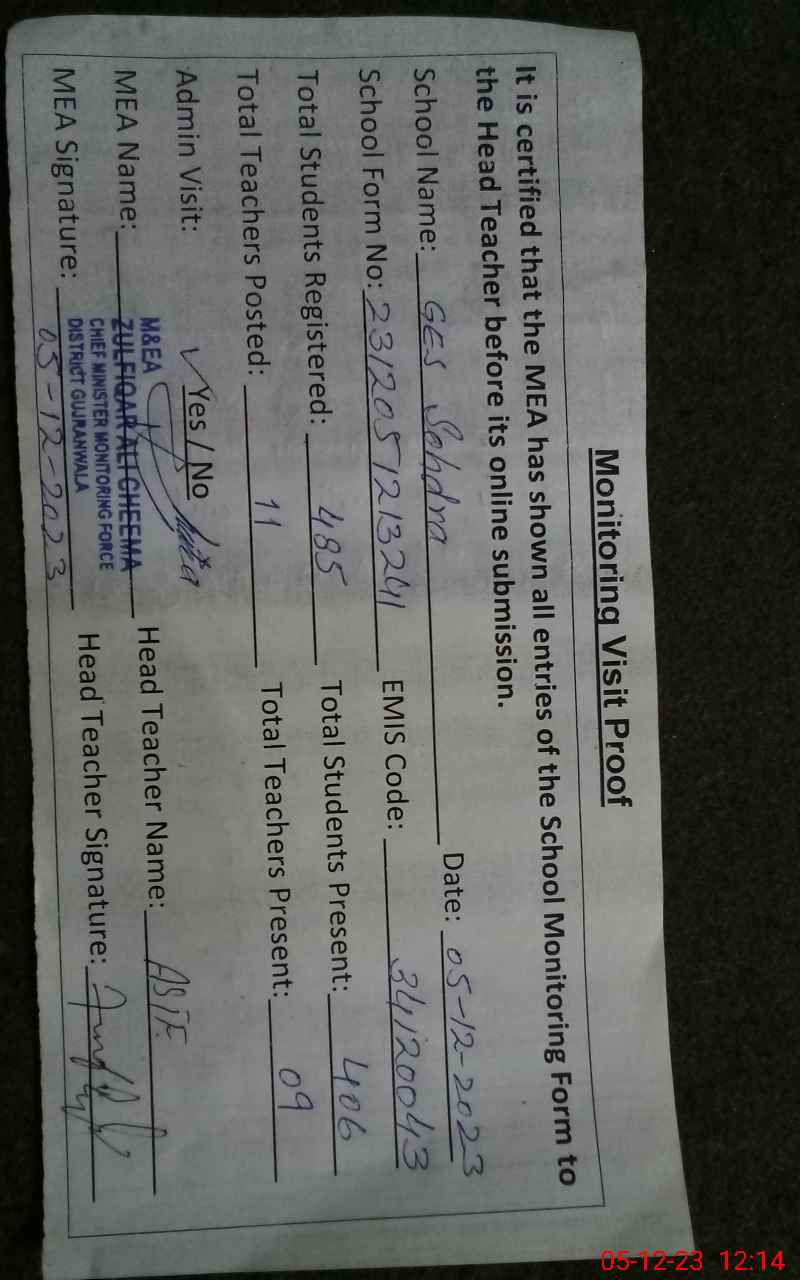 Monitoring Visit Proof
It is certified that the MEA has shown all entries of the School Monitoring Form to
the Head Teacher before its online submission.
School Name: GES Sohdra Date: 05-12-2023
School Form No: 2312051213241 EMIS Code: 34120043
Total Students Registered: 485 Total Students Present: 406
Total Teachers Posted: 11 Total Teachers Present: 09
Admin Visit: Yes / No
MEA Name: M&EA Head Teacher Name: ASIF
ZULFIQAR ALI CHEEMA
CHIEF MINISTER MONITORING FORCE
DISTRICT GUJRANWALA
MEA Signature: 05-12-2023 Head Teacher Signature:
05-12-23 12:14